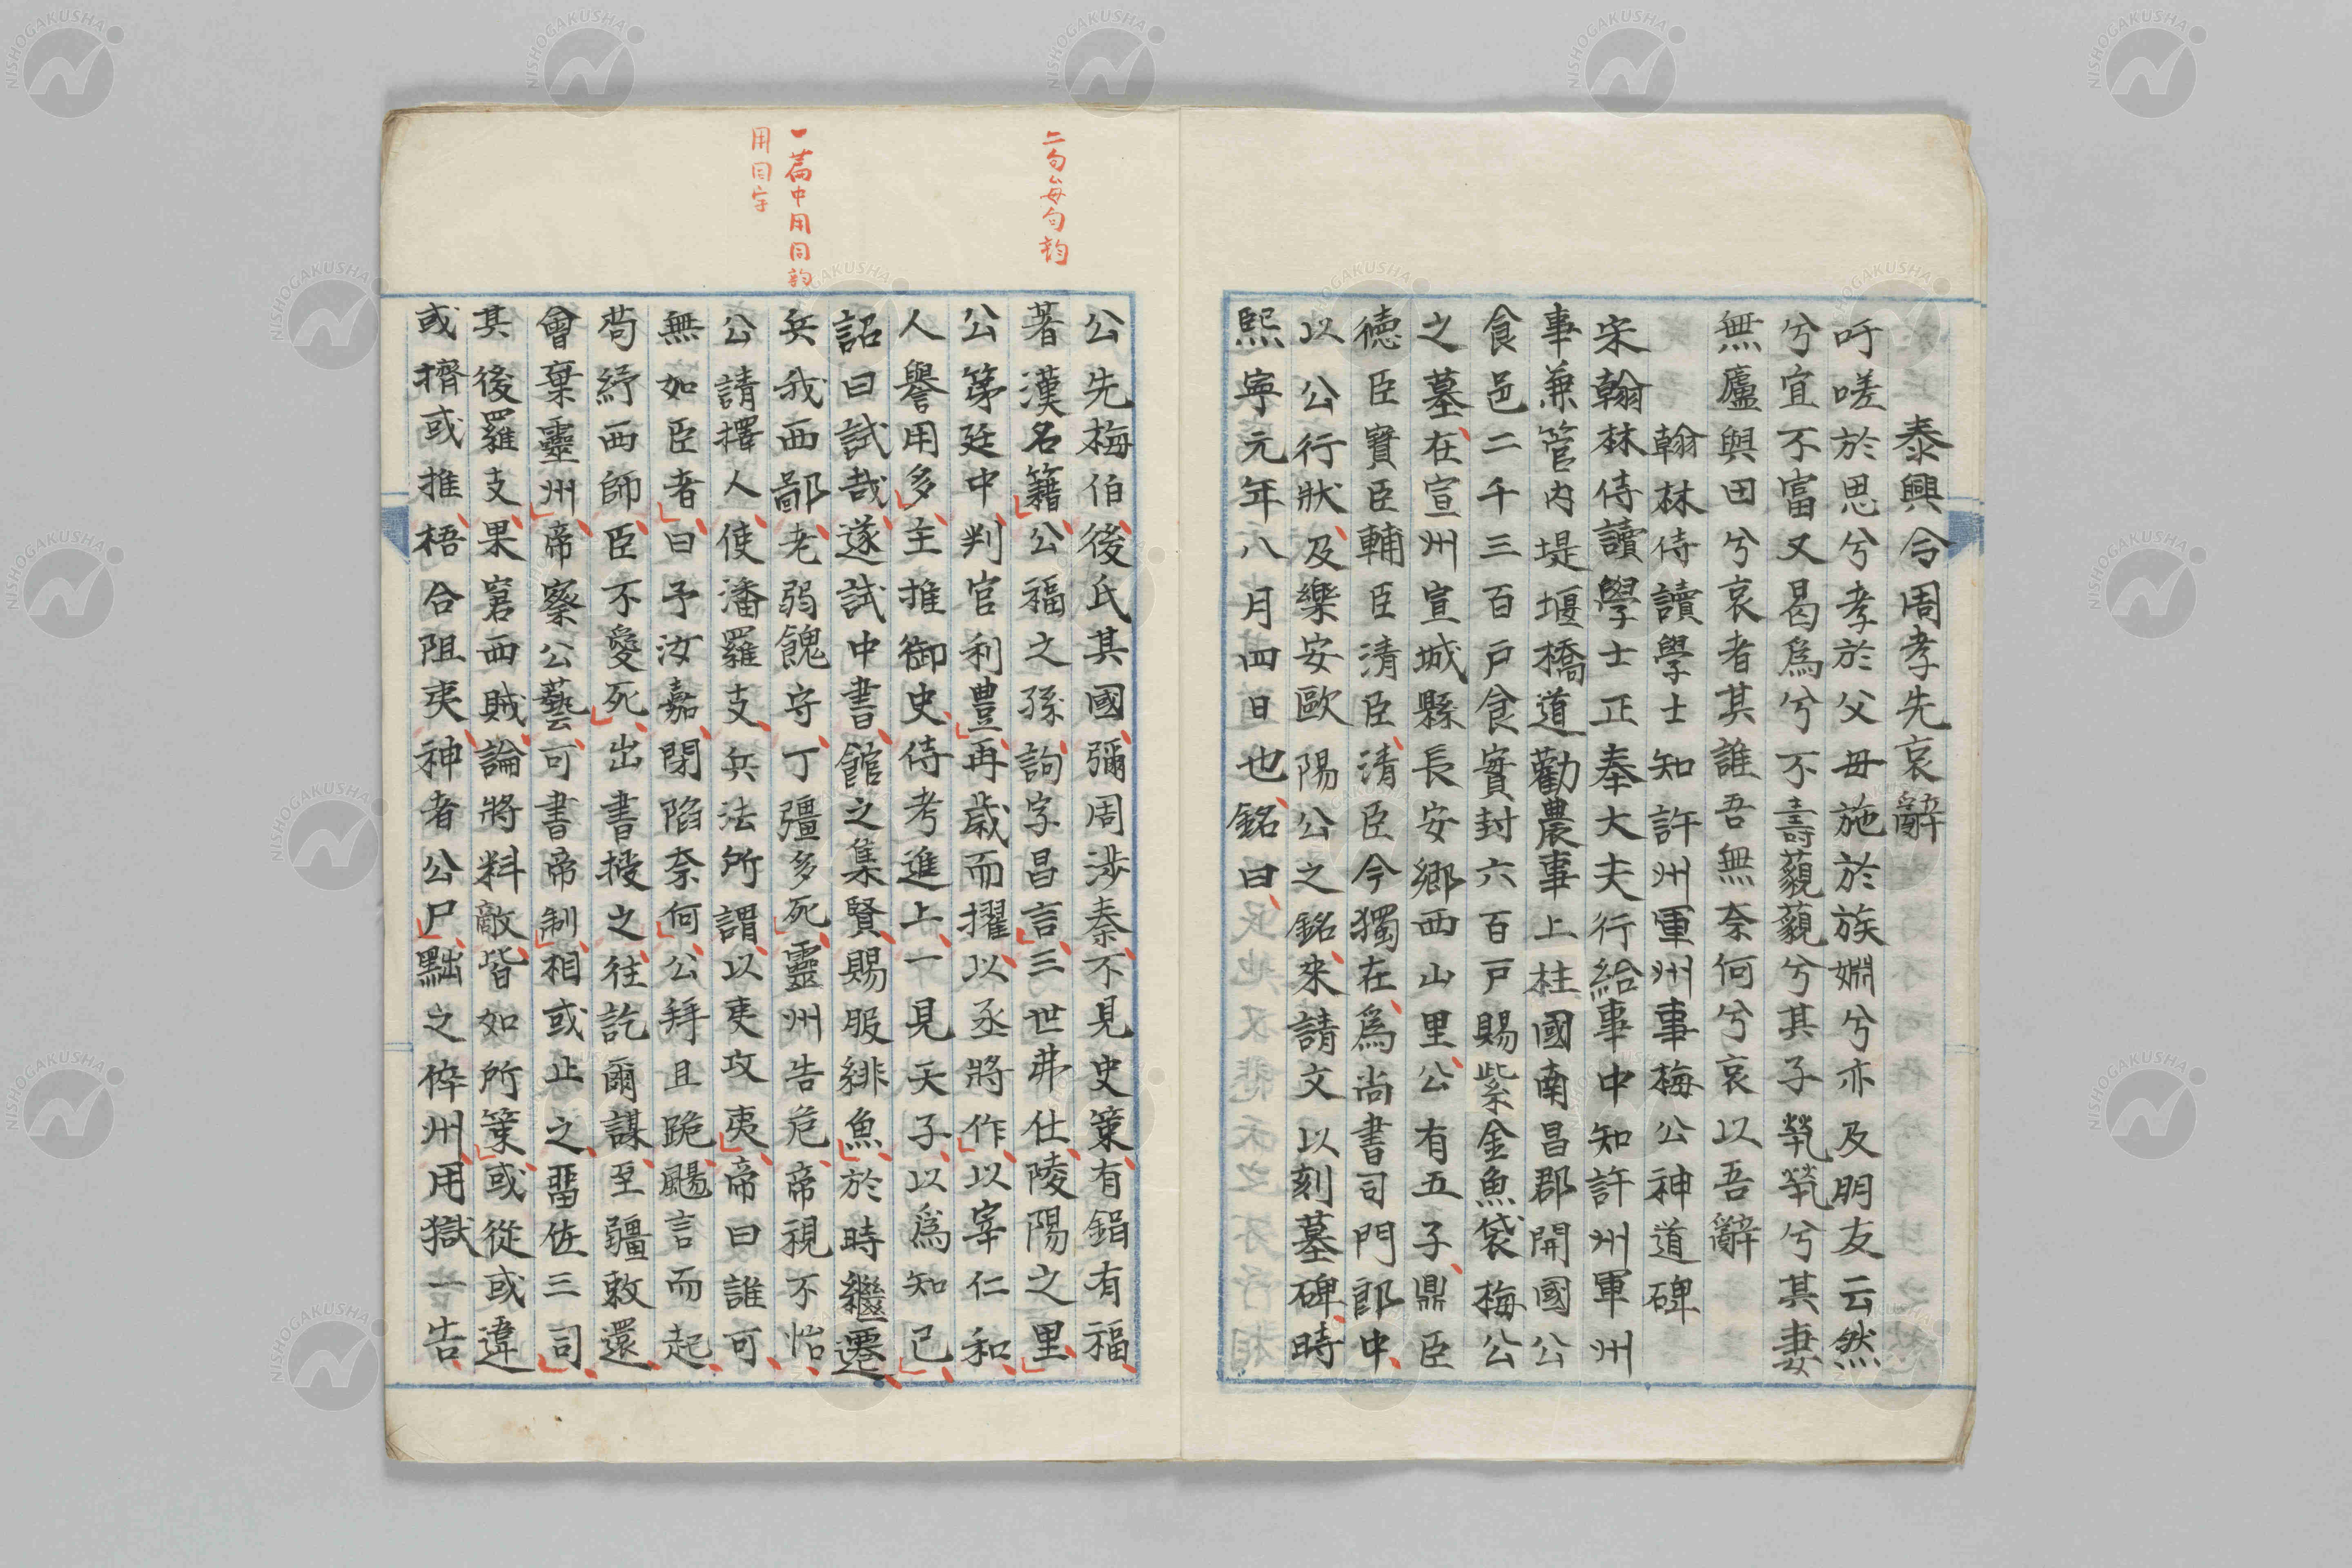 泰興令周孝先哀辭
吁嗟於思兮孝於父母施於族婣兮亦及朋友云然
兮宜不富又曷爲兮不壽藐藐兮其子煢煢兮其妻
無廬與田兮哀者其誰吾無奈何兮哀以吾辭
翰林侍讀學士知許州軍州事梅公神道碑
宋翰林侍讀學士正奉大夫行給事中知許州軍州
事兼管內堤堰橋道勸農事上柱國南昌郡開國公
食邑二千三百戸食實封六百戸賜紫金魚袋梅公
之墓在宣州宣城縣長安鄉西山里公有五子鼎臣
德臣寶臣輔臣清臣清臣今獨在爲尚書司門郎中
以公行狀及樂安歐陽公之銘來請文以刻墓碑時
熙寧元年八月四日也銘曰
二句每句韵
一篇中用同韵
用同字
公先梅伯後氏其國彌周涉秦不見史策有鋗有福
著漢名籍公福之孫詢字昌言三世弗仕陵陽之里
公第廷中判官利豊再歲而擢以丞將作以宰仁和
人譽用多主推御史侍考進上一見天子以爲知己
詔曰試哉遂試中書館之集賢賜服緋魚於時繼遷
兵我西鄙老弱餽守丁彊多死靈州告危帝視不怡
公請擇人使潘羅支兵法所謂以夷攻夷帝曰誰可
無如臣者曰予汝嘉閉陷奈何公拜且跪颺言而起
苟紓西師臣不愛死出書授之往訖爾謀至疆敕還
會棄靈州帝察公藝可書帝制相或止之畱佐三司
其後羅支果窘西賊論將料敵皆如所策或從或違
或擠或推梧合阻夷神者公尸黜之倅州用獄一告
NISHOGAKUSHA